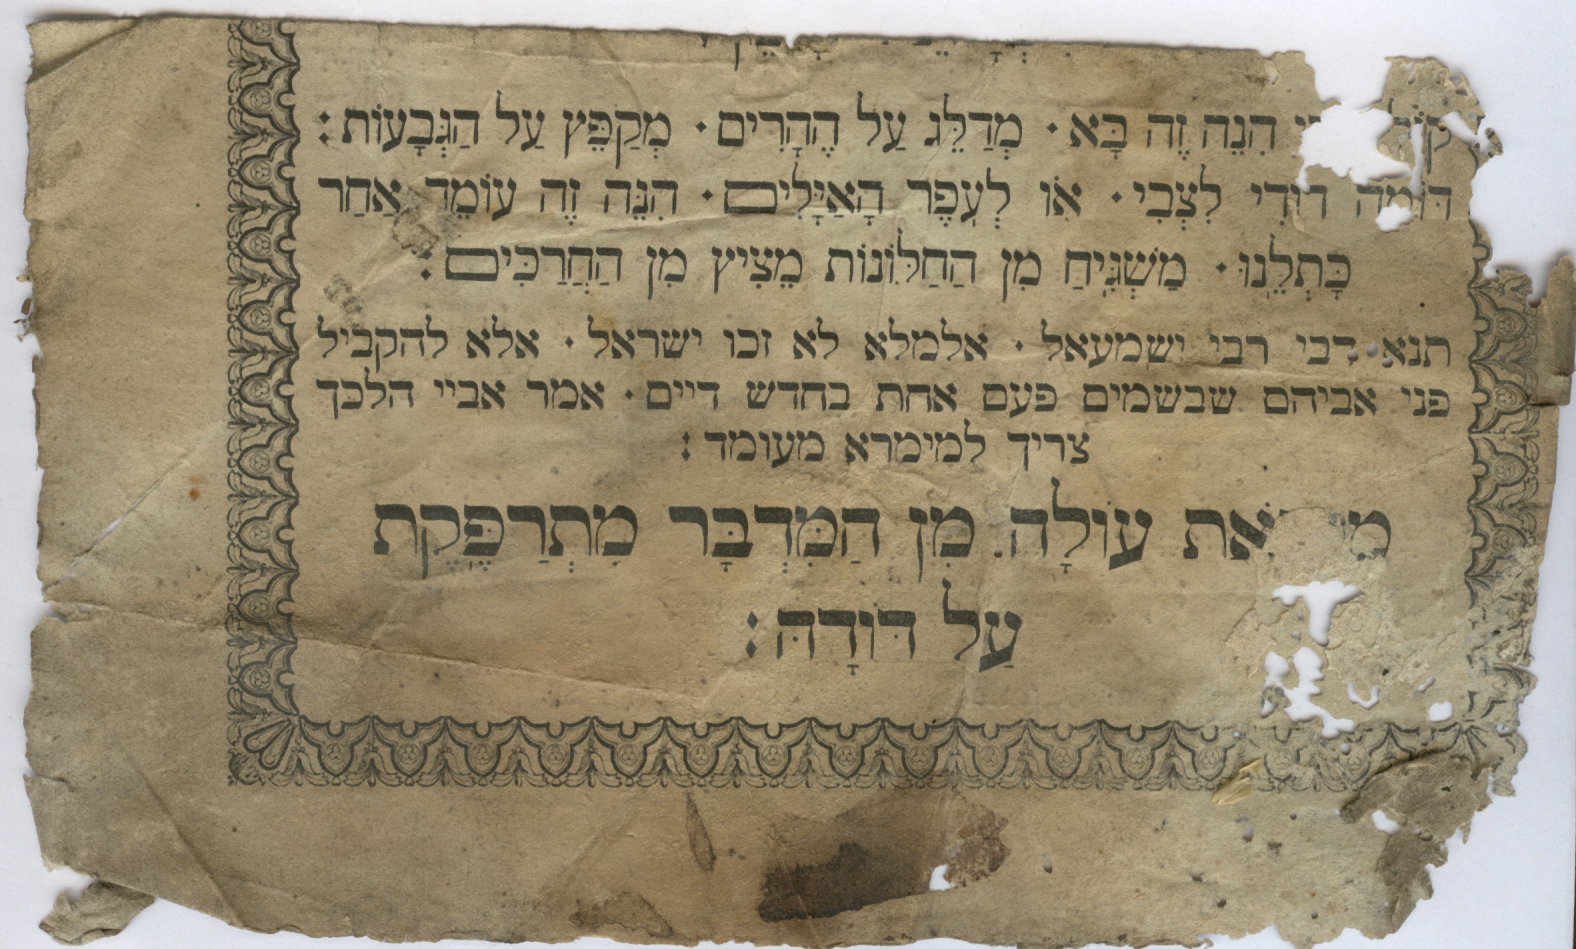 הִנֵּה זֶה בָּא · מְדַלֵּג עַל הֶהָרִים · מְקַפֵּץ עַל הַגְּבָעוֹת:
דּוֹמֶה דוֹדִי לִצְבִי · אוֹ לְעֹפֶר הָאַיָּלִים · הִנֵּה זֶה עוֹמֵד אַחַר
כָּתְלֵנוּ · מַשְׁגִּיחַ מִן הַחַלּוֹנוֹת מֵצִיץ מִן הַחֲרַכִּים:
תנא דבי רבי ישמעאל · אלמלא לא זכו ישראל · אלא להקביל
פני אביהם שבשמים פעם אחת בחדש דיים · אמר אביי הלכך
צריך למימרא מעומד:
עוֹלָה מִן הַמִּדְבָּר מִתְרַפֶּקֶת
עַל דּוֹדָהּ: